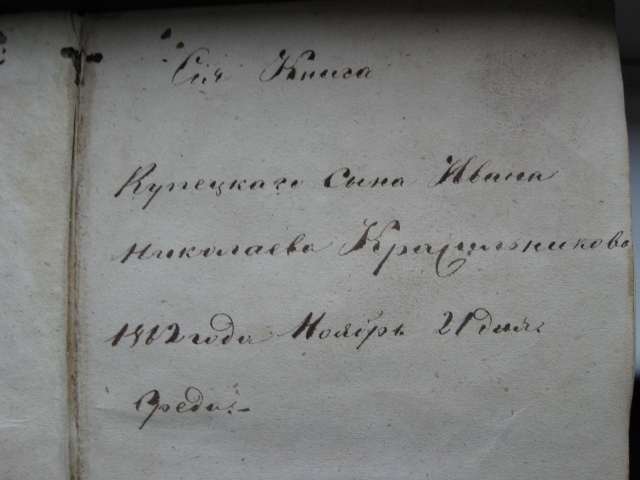 Сия Книга
Купецкаго сына Ивана
Николаева Крашильникова
1862 года Ноябрь 21 дня:
Среда.-